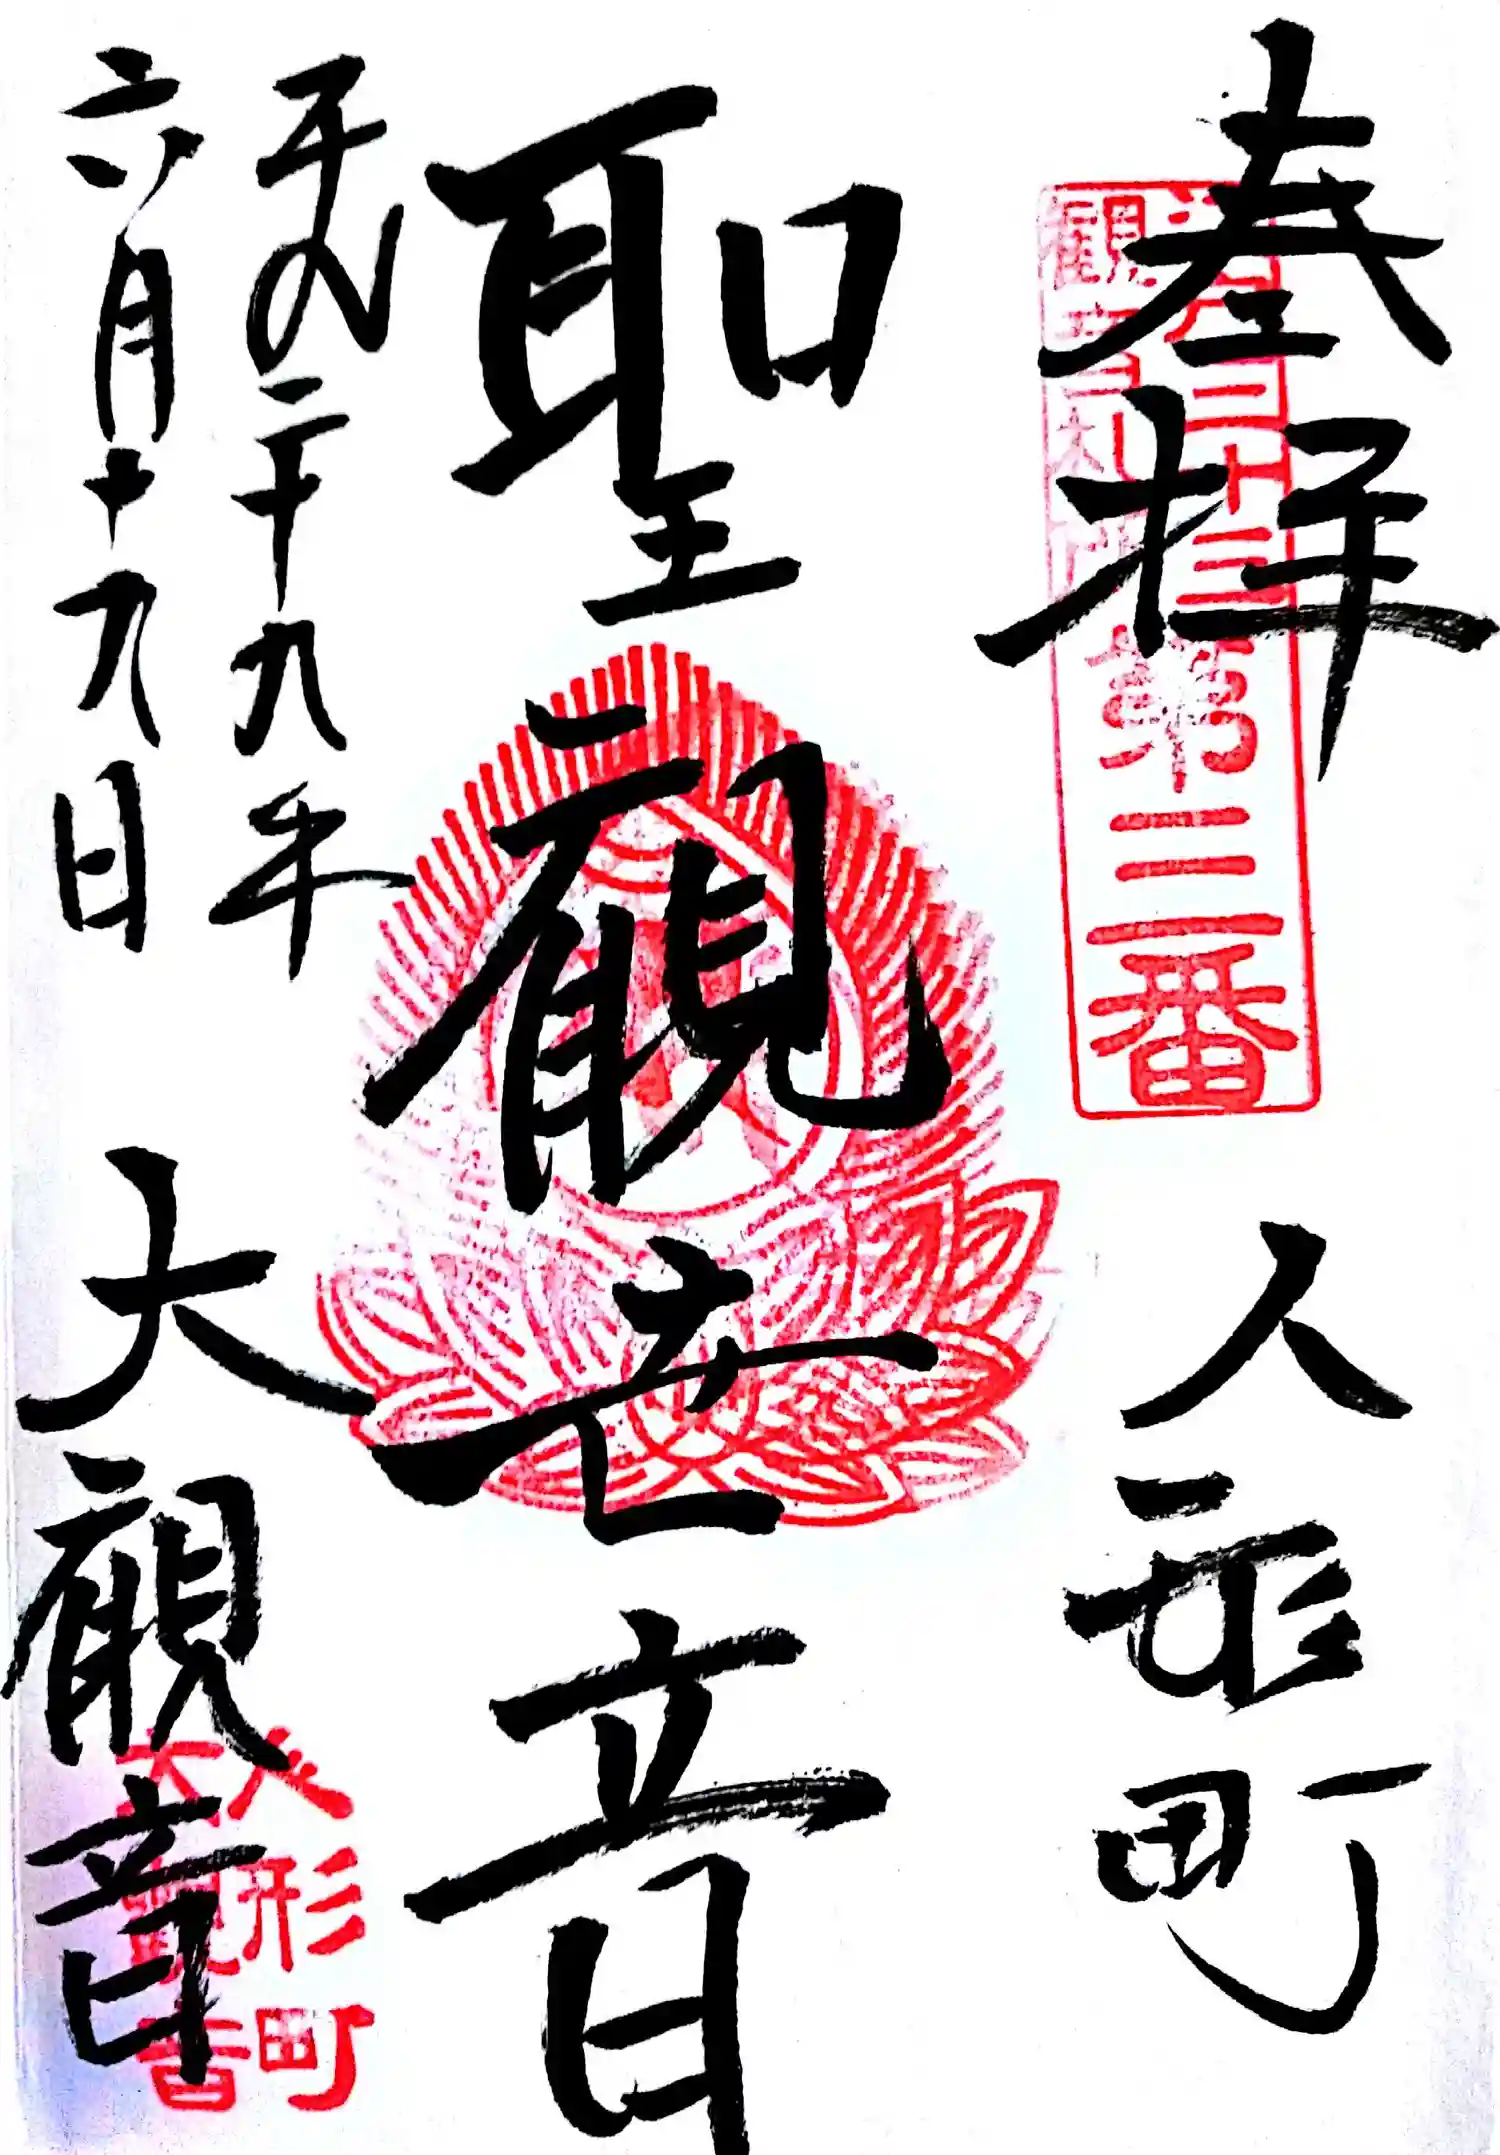 奉拝
人形町
聖観世音
平成二十九年
六月十九日
大観音
第三番
人形町